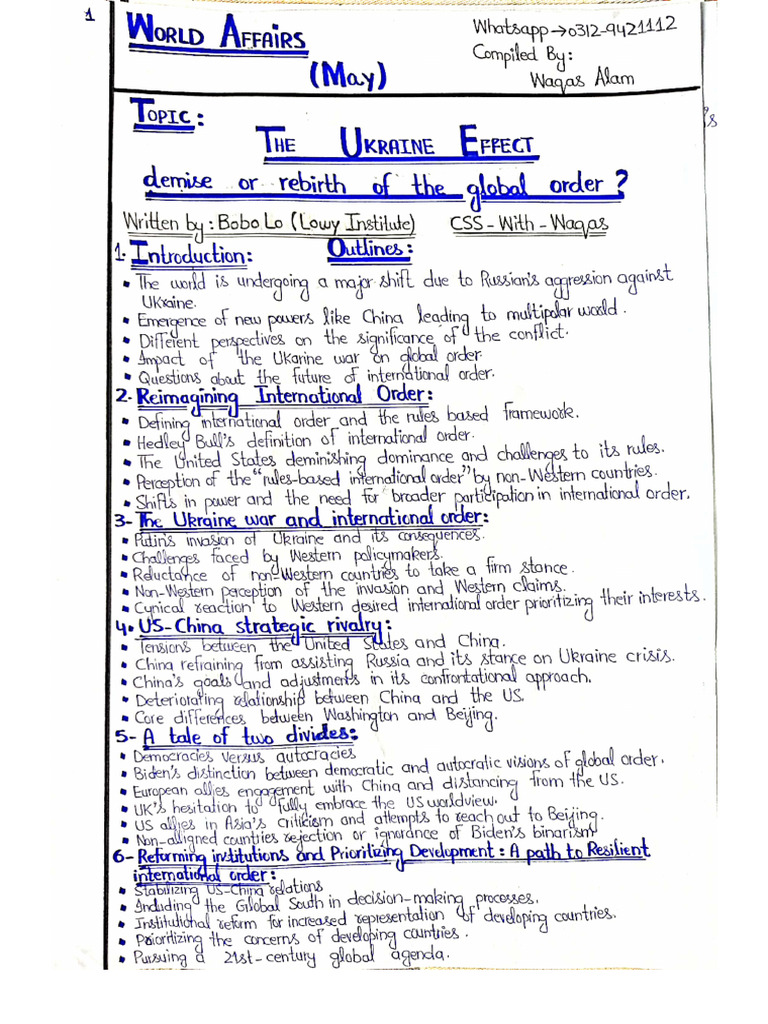 1
WORLD AFFAIRS
(May)
Whatsapp→0312-9421112
Compiled By:
Waqas Alam
TOPIC:
THE UKRAINE EFFECT
demise or rebirth of the global order?
Written by: Bobo Lo (Lowy Institute) CSS-With-Waqas
1. Introduction: Outlines:
• The world is undergoing a major shift due to Russian's aggression against
Ukraine.
• Emergence of new powers like China leading to multipolar world.
• Different perspectives on the significance of the conflict.
• Impact of the Ukarine war on global order
• Questions about the future of international order.
2- Reimagining International Order:
• Defining international order and the rules based framework.
• Hedley Bull's definition of international order.
• The United States deminishing dominance and challenges to its rules.
• Perception of the "rules-based international order" by non-Western countries.
• Shifts in power and the need for broader participation in international order.
3- The Ukraine war and international order:
• Putin's invasion of Ukraine and its consequences.
• Challenges faced by Western policymakers.
• Reluctance of non-Western countries to take a firm stance.
• Non-Western perception of the invasion and Western claims.
• Cynical reaction to Western desired international order prioritizing their interests.
4. US-China strategic rivalry:
• Tensions between the United States and China.
• China refraining from assisting Russia and its stance on Ukraine crisis.
• China's goals and adjustments in its confrontational approach.
• Deteriorating relationship between China and the US.
• Core differences between Washington and Beijing.
5- A tale of two divides:
• Democracies versus autocracies
• Biden's distinction between democratic and autocratic visions of global order.
• European allies engagement with China and distancing from the US.
• UK's hesitation to fully embrace the US worldview.
• US allies in Asia's criticism and attempts to reach out to Beijing.
• Non-aligned countries rejection or ignorance of Biden's binarism
6- Reforming institutions and Prioritizing Development: A path to Resilient
international order:
• Stabilizing US-China relations
• Including the Global South in decision-making processes.
• Institutional reform for increased representation of developing countries.
• Prioritizing the concerns of developing countries.
• Pursuing a 21st-century global agenda.